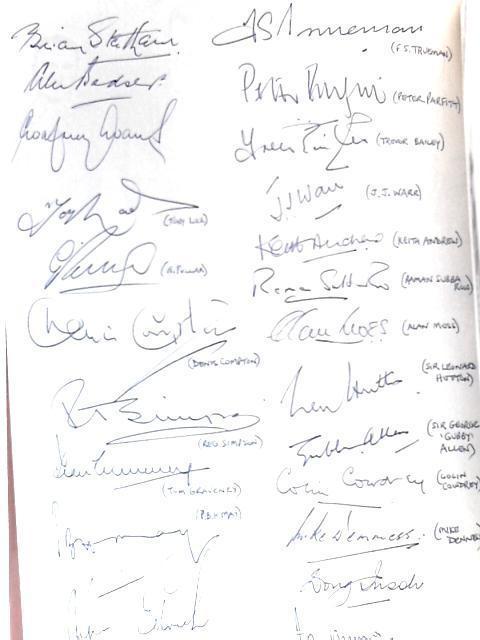 Brian Statham
F S Trueman
(F.S. TRUEMAN)
Alec Bedser
Peter Parfitt
(PETER PARFITT)
Godfrey Evans
Trevor Bailey
(TREVOR BAILEY)
J.J. Warr
(J.J. WARR)
Tony Lock
(TONY LOCK)
Keith Andrew
(KEITH ANDREW)
G Pullar
(G. PULLAR)
Raman Subba Row
(RAMAN SUBBA ROW)
Denis Compton
(DENIS COMPTON)
Alan Moss
(ALAN MOSS)
Len Hutton
(SIR LEONARD
HUTTON)
R T Simpson
(REG. SIMPSON)
Gubby Allen
(SIR GEORGE
'GUBBY'
ALLEN)
Tom Graveney
(TOM GRAVENEY)
Colin Cowdrey
(COLIN
COWDREY)
(P.B.H. MAY)
Mike Denness
(MIKE
DENNES
Doug Insole